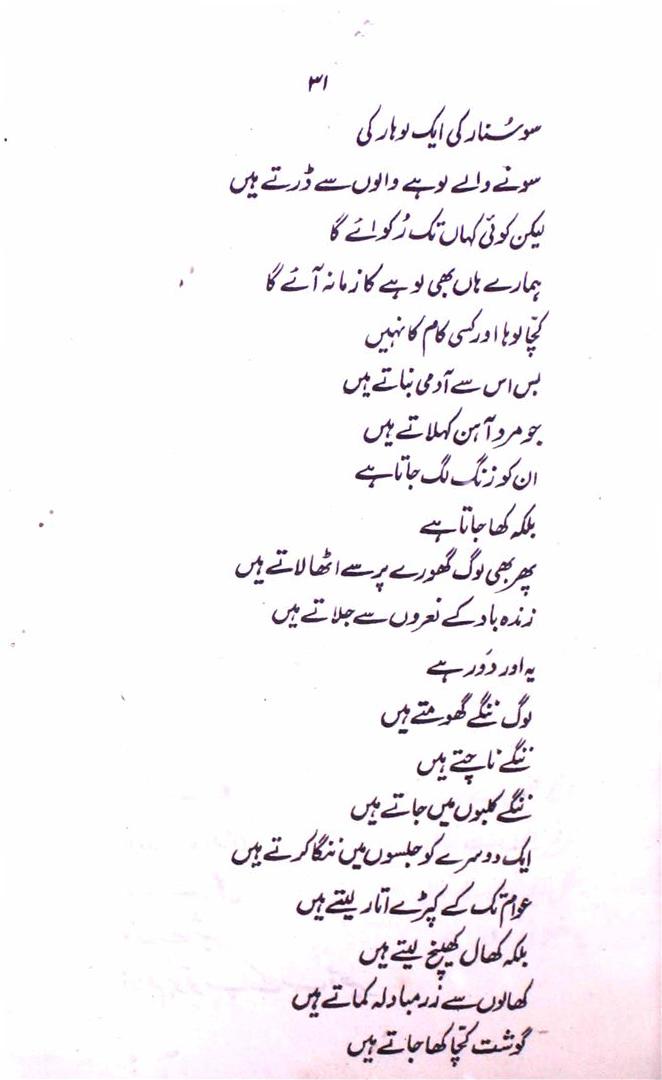 ۳۱
سو سُنار کی ایک لوہار کی
سونے والے لوہے والوں سے ڈرتے ہیں
لیکن کوئی کہاں تک رُکوائے گا
ہمارے ہاں بھی لوہے کا زمانہ آئے گا
کچّا لوہا اور کسی کام کا نہیں
بس اس سے آدمی بناتے ہیں
جو مردِ آہن کہلاتے ہیں
ان کو زنگ لگ جاتا ہے
بلکہ کھا جاتا ہے
پھر بھی لوگ گھورے پر سے اٹھا لاتے ہیں
زندہ باد کے نعروں سے جلاتے ہیں
یہ اور دَور ہے
لوگ ننگے گھومتے ہیں
ننگے ناچتے ہیں
ننگے کلبوں میں جاتے ہیں
ایک دوسرے کو جلسوں میں ننگا کرتے ہیں
عوام تک کے کپڑے اتار لیتے ہیں
بلکہ کھال کھینچ لیتے ہیں
کھالوں سے زرمبادلہ کماتے ہیں
گوشت کچّا کھا جاتے ہیں